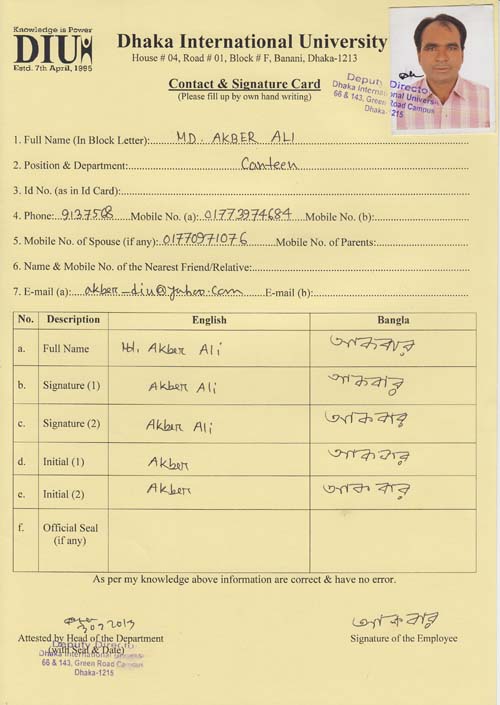 Knowledge is Power
DIU
Estd. 7th April, 1995
Dhaka International University
House # 04, Road # 01, Block # F, Banani, Dhaka-1213
Contact & Signature Card
(Please fill up by own hand writing)
Deputy Director
Dhaka International University
66 & 143, Green Road Campus
Dhaka-1215
1. Full Name (In Block Letter): MD. AKBER ALI
2. Position & Department: Canteen
3. Id No. (as in Id Card):
4. Phone: 9137508 Mobile No. (a): 01773974684 Mobile No. (b):
5. Mobile No. of Spouse (if any): 01770971076 Mobile No. of Parents:
6. Name & Mobile No. of the Nearest Friend/Relative:
7. E-mail (a): akber_diu@yahoo.com E-mail (b):
No. Description English Bangla
a. Full Name Md. Akber Ali আকবার
b. Signature (1) Akber Ali আকবার
c. Signature (2) Akber Ali আকবার
d. Initial (1) Akber আকবার
e. Initial (2) Akber আকবার
f. Official Seal
(if any)
As per my knowledge above information are correct & have no error.
2013 আকবার
Attested by Head of the Department Signature of the Employee
(with Seal & Date)
Deputy Director
Dhaka International University
66 & 143, Green Road Campus
Dhaka-1215